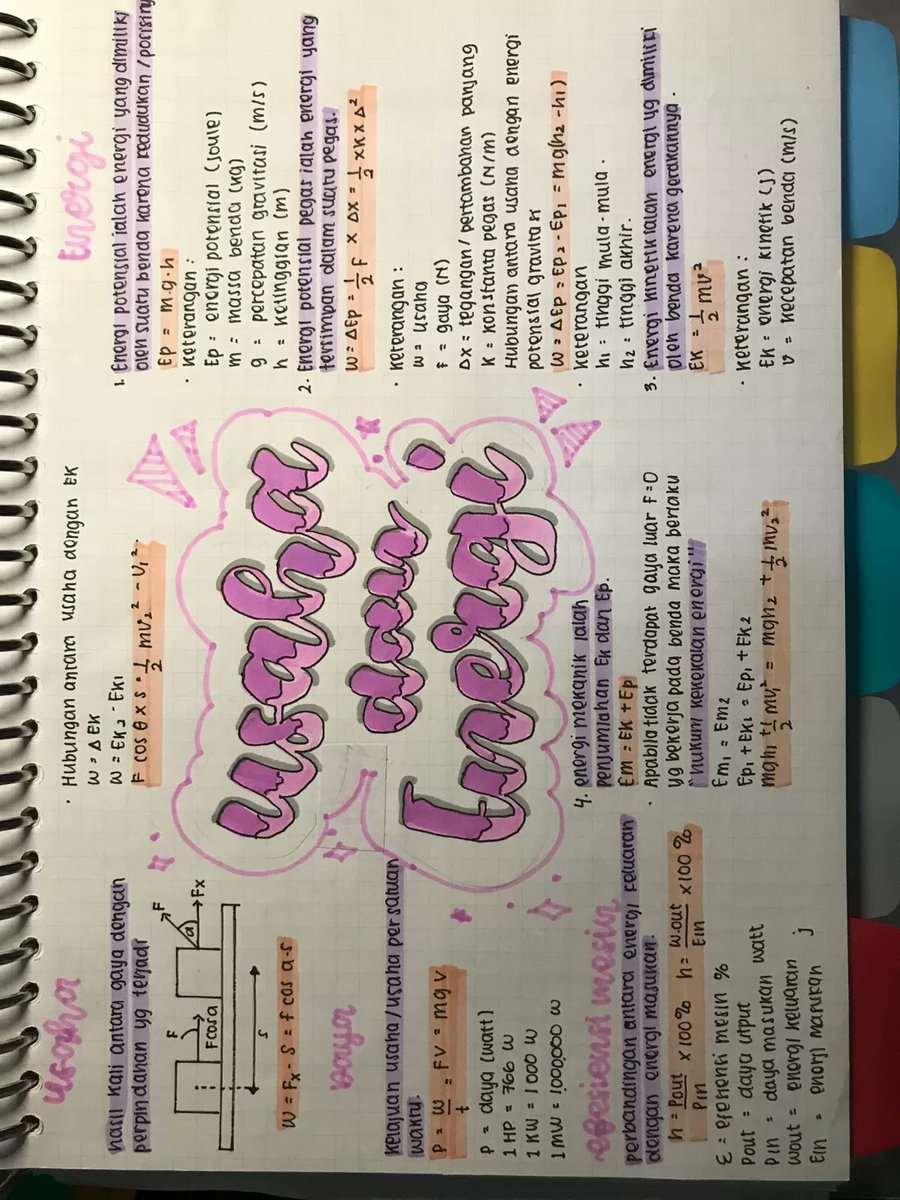 usaha
hasil kali antara gaya dengan
perpindahan yg terjadi
F
F cos a
F
a
Fx
s
W = Fx - S = f cos a - s
Daya
Kelajuan usaha/usaha persatuan
waktu.
P = W/t = FV = mg v
P = daya (watt)
1 HP = 766 W
1 KW = 1000 W
1 MW = 1,000,000 W
efesiensi mesin
perbandingan antara energi keluaran
dengan energi masukan.
h = Pout/Pin x100% h = W.out/EIn x100%
ε = efisiensi mesin %
Pout = daya utput
Pin = daya masukan watt
Wout = energi keluaran j
EIn = energi masukan
· Hubungan antara usaha dengan EK
W = Δ EK
W = EK2 - EK1
F cos θ x s = 1/2 mv2² - v1².
usaha
dan
Energi
4. energi mekanik ialah
penjumlahan Ek dan Ep.
Em = EK + Ep
· Apabila tidak terdapat gaya luar F=0
yg bekerja pada benda maka berlaku
"hukum kekekalan energi"
Em1 = Em2
Ep1 + EK1 = Ep1 + EK2
mgh1 + 1/2 mv1² = mgh2 + 1/2 mv2²
Energi
1. Energi potensial ialah energi yang dimiliki
oleh suatu benda karena kedudukan/posisiny
Ep = m.g.h
· Keterangan:
Ep = energi potensial (joule)
m = massa benda (kg)
g = percepatan gravitasi (m/s)
h = ketinggian (m)
2. Energi potensial pegas ialah energi yang
tersimpan dalam suatu pegas.
W = ΔEp = 1/2 F x Δx = 1/2 x K x Δ²
· Keterangan:
W = usaha
F = gaya (N)
Δx = tegangan/pertambahan panjang
K = konstanta pegas (N/m)
Hubungan antara usaha dengan energi
potensial gravitasi
W = ΔEp = Ep2 - Ep1 = mg(h2 - h1)
· Keterangan
h1 = tinggi mula-mula.
h2 = tinggi akhir.
3. Energi kinetik ialah energi yg dimiliki
oleh benda karena gerakannya.
EK = 1/2 mv²
· Keterangan:
EK = energi kinetik (j)
v = kecepatan benda (m/s)